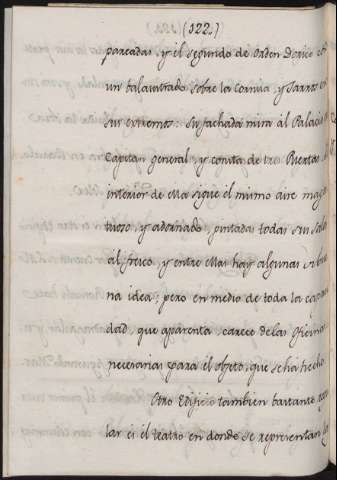 (122.)
pareadas, y el segundo de Orden Dorico con
un balaustrado sobre la Cornisa, y Jarros en
sus extremos: su fachada mira al Palacio
Capitan general y consta de tres Puertas. El
interior de ella sigue el mismo aire mages
tuoso, y adornado pintadas todas sus salas
al fresco, y entre ellas hay algunas de bue
na idea; pero en medio de toda la capaci
dad, que aparenta carece de las oficinas
necesarias para el objeto, que se ha hecho.
Otro Edificio tambien bastante regu
lar es el teatro en donde se representan